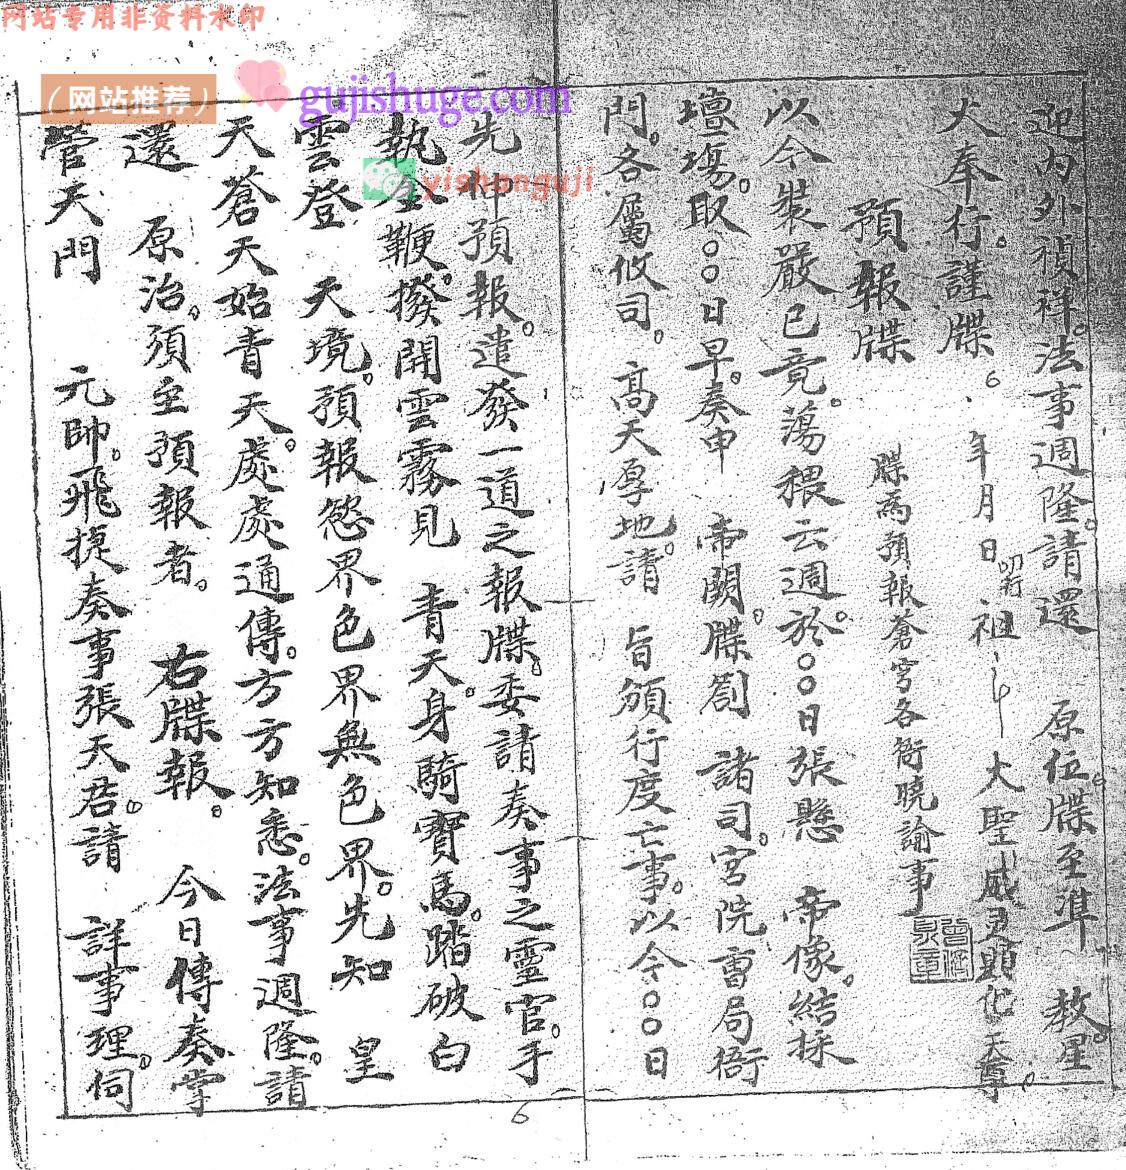 网站专用非资料水印
（网站推荐）
gujishuge.com
yishanguji
迎内外禎祥。法事週隆。請還　原位。牒至準　教。星
火奉行。謹牒。　年月日　叩行　祖　大聖威灵顕化天尊。
預報牒　牒為預報蒼穹各衙曉諭事
以今裝嚴已竟。蕩穢云週。於○○日張懸　帝像。結採
壇塲。取○○日早。奏申　帝闕。牒劄　諸司。宮院曹局衙
門。各屬攸司。高天厚地。請　旨頒行度亡事。以今○○日
先伸預報。遣發一道之報牒。委請奏事之靈官。手
執金鞭。撥開雲霧見　青天。身騎寶馬。踏破白
雲登　天境。預報慾界色界無色界。先知　皇
天蒼天始青天。處處通傳。方方知悉。法事週隆。請
還　原治。須至預報者。　右牒報。　今日傳奏掌
管天門　元帥。飛捷奏事張天君。請　詳事理。伺
6